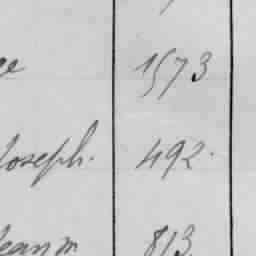 1573
Joseph. 492.
813